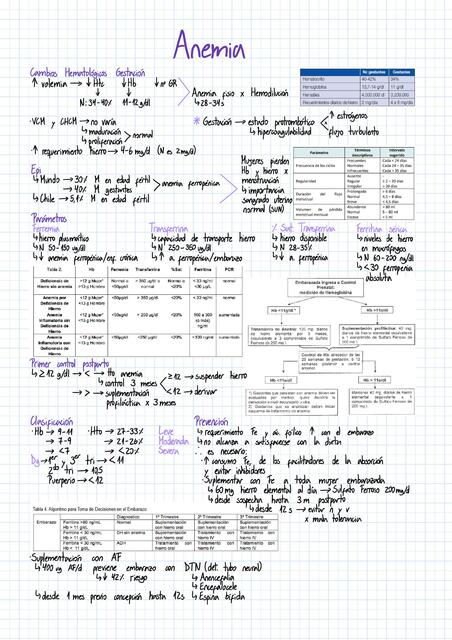 Anemia
Cambios Hematológicos Gestación
↑ volemia → ↓Htc ↓Hb ↓nº GR
N: 34-40% 11-12 g/dl
Anemia fisio x Hemodilución
↳ 28-34s
No gestantes Gestantes
Hematocrito 40-42% 34%
Hemoglobina 13,7-14 g/dl 11 g/dl
Hematíes 4.500.000 dl 3.200.000
Requerimientos diarios de hierro 2 mg/día 4 a 6 mg/día
·VCM y CHCM → no varía
↳ maduración
↳ proliferación
normal
↑ requerimiento hierro → 4-6 mg/d (N es 2mg/d)
* Gestación → estado protrombótico
↳ hipercoagulabilidad
↑ estrógenos
flujo turbulento
Epi
↳ Mundo → 30% M en edad fértil
↳ 40% M gestantes
↳ Chile → 5,1% M en edad fértil
anemia ferropénica
Mujeres pierden
Hb y hierro x
menstruación
↳ importancia
sangrado uterino
normal (SUN)
Parámetro Términos descriptivos Intervalo sugerido
Frecuencia de los ciclos Frecuentes Normales Infrecuentes
Cada < 24 días
Cada 24 – 38 días
Cada > 38 días
Regularidad Ausente Regular Irregular
± 2 – 20 días
> 20 días
Duración del flujo menstrual Prolongada Normal Breve
> 8 días
4,5 – 8 días
< 4,5 días
Volumen de pérdida menstrual mensual Abundante Normal Escaso
> 80 ml
5 – 80 ml
< 5 ml
Parámetros
Ferremia
↳ hierro plasmático
↳ N 50-150 ug/dl
↳ ↓ anemia ferropénica/enf. crónica
Transferrina
↳ capacidad de transporte hierro
↳ N 250-350 ug/dl
↳ ↑ a. ferropénica/embarazo
% Sat. Transferrina
↳ hierro disponible
↳ N 28-35%
↳ ↓ a. ferropénica
Ferritina sérica
↳ niveles de hierro
en macrófagos
↳ N 60-200 ng/dl
↳ <30 ferropenia
absoluta
Tabla 2. Hb Ferremia Transferrina %Sat Ferritina PCR
Deficiencia de Hierro sin anemia
Anemia por Deficiencia de Hierro
Anemia Inflamatoria con Deficiencia de Hierro
Anemia Inflamatoria sin Deficiencia de Hierro
Embarazada ingresa a Control Prenatal: medición de Hemoglobina
Hb <11g/dl * Hb >11g/dl
Tratamiento de Anemia: 120 mg. diarios de hierro elemental por 3 meses, equivalente a 3 comprimidos de Sulfato Ferroso de 200 mg.
Suplementación profiláctica: 40 mg. diarios de hierro elemental equivalente a 1 comprimido de Sulfato Ferroso de 200 mg.
Control de Hb alrededor de las 28 semanas de gestación, 6-12 semanas posterior a control anterior.
Hb <11g/dl Hb >11g/dl
Primer control postparto
↳ ≥12 g/dl → < → tto anemia
↳ control 3 meses
≥12 → suspender hierro
<12 → derivar
↳ > → suplementación
profiláctica x 3 meses
Clasificación
·Hb → 9-11 ·Hto → 27-33% Leve
→ 7-9 → 21-26% Moderada
→ <7 → <20% Severa
Dg → 1er y 3er tri → <11
2do tri → 10,5
Puerperio → <12
Prevención
↳ requerimiento Fe y ác. fólico ↑ con el embarazo
↳ no alcanza a satisfacerse con la dieta
∴ es necesario:
·↑ consumo Fe, de los facilitadores de la absorción
y evitar inhibidores
·Suplementar con Fe a toda mujer embarazada
↳ 60 mg hierro elemental al día → Sulfato Ferroso 200mg/d
↳ desde sospecha hasta 3 m postparto
↳ desde 12s → evitar n y v
x mala tolerancia
Tabla 4. Algoritmo para Toma de Decisiones en el Embarazo
Diagnóstico 1º Trimestre 2º Trimestre 3º Trimestre
Embarazo Ferritina >30 ng/mL Hb > 11 g/dL Normal Suplementación con hierro oral Suplementación con hierro oral Suplementación con hierro oral
Ferritina < 30 ng/mL, Hb > 11 g/dL DH sin anemia Suplementación con hierro oral Tratamiento con hierro oral Tratamiento hierro IV
Ferritina < 30 ng/mL, Hb < 11 g/dL ADH Tratamiento con hierro oral Tratamiento hierro IV Tratamiento hierro IV
·Suplementación con AF
↳ 400 ug AF/d previene embarazo con DTN (def. tubo neural)
↳ ↓ 42% riesgo
↳ Anencefalia
↳ Encefalocele
↳ Espina bífida
↳ desde 1 mes previo concepción hasta 12s